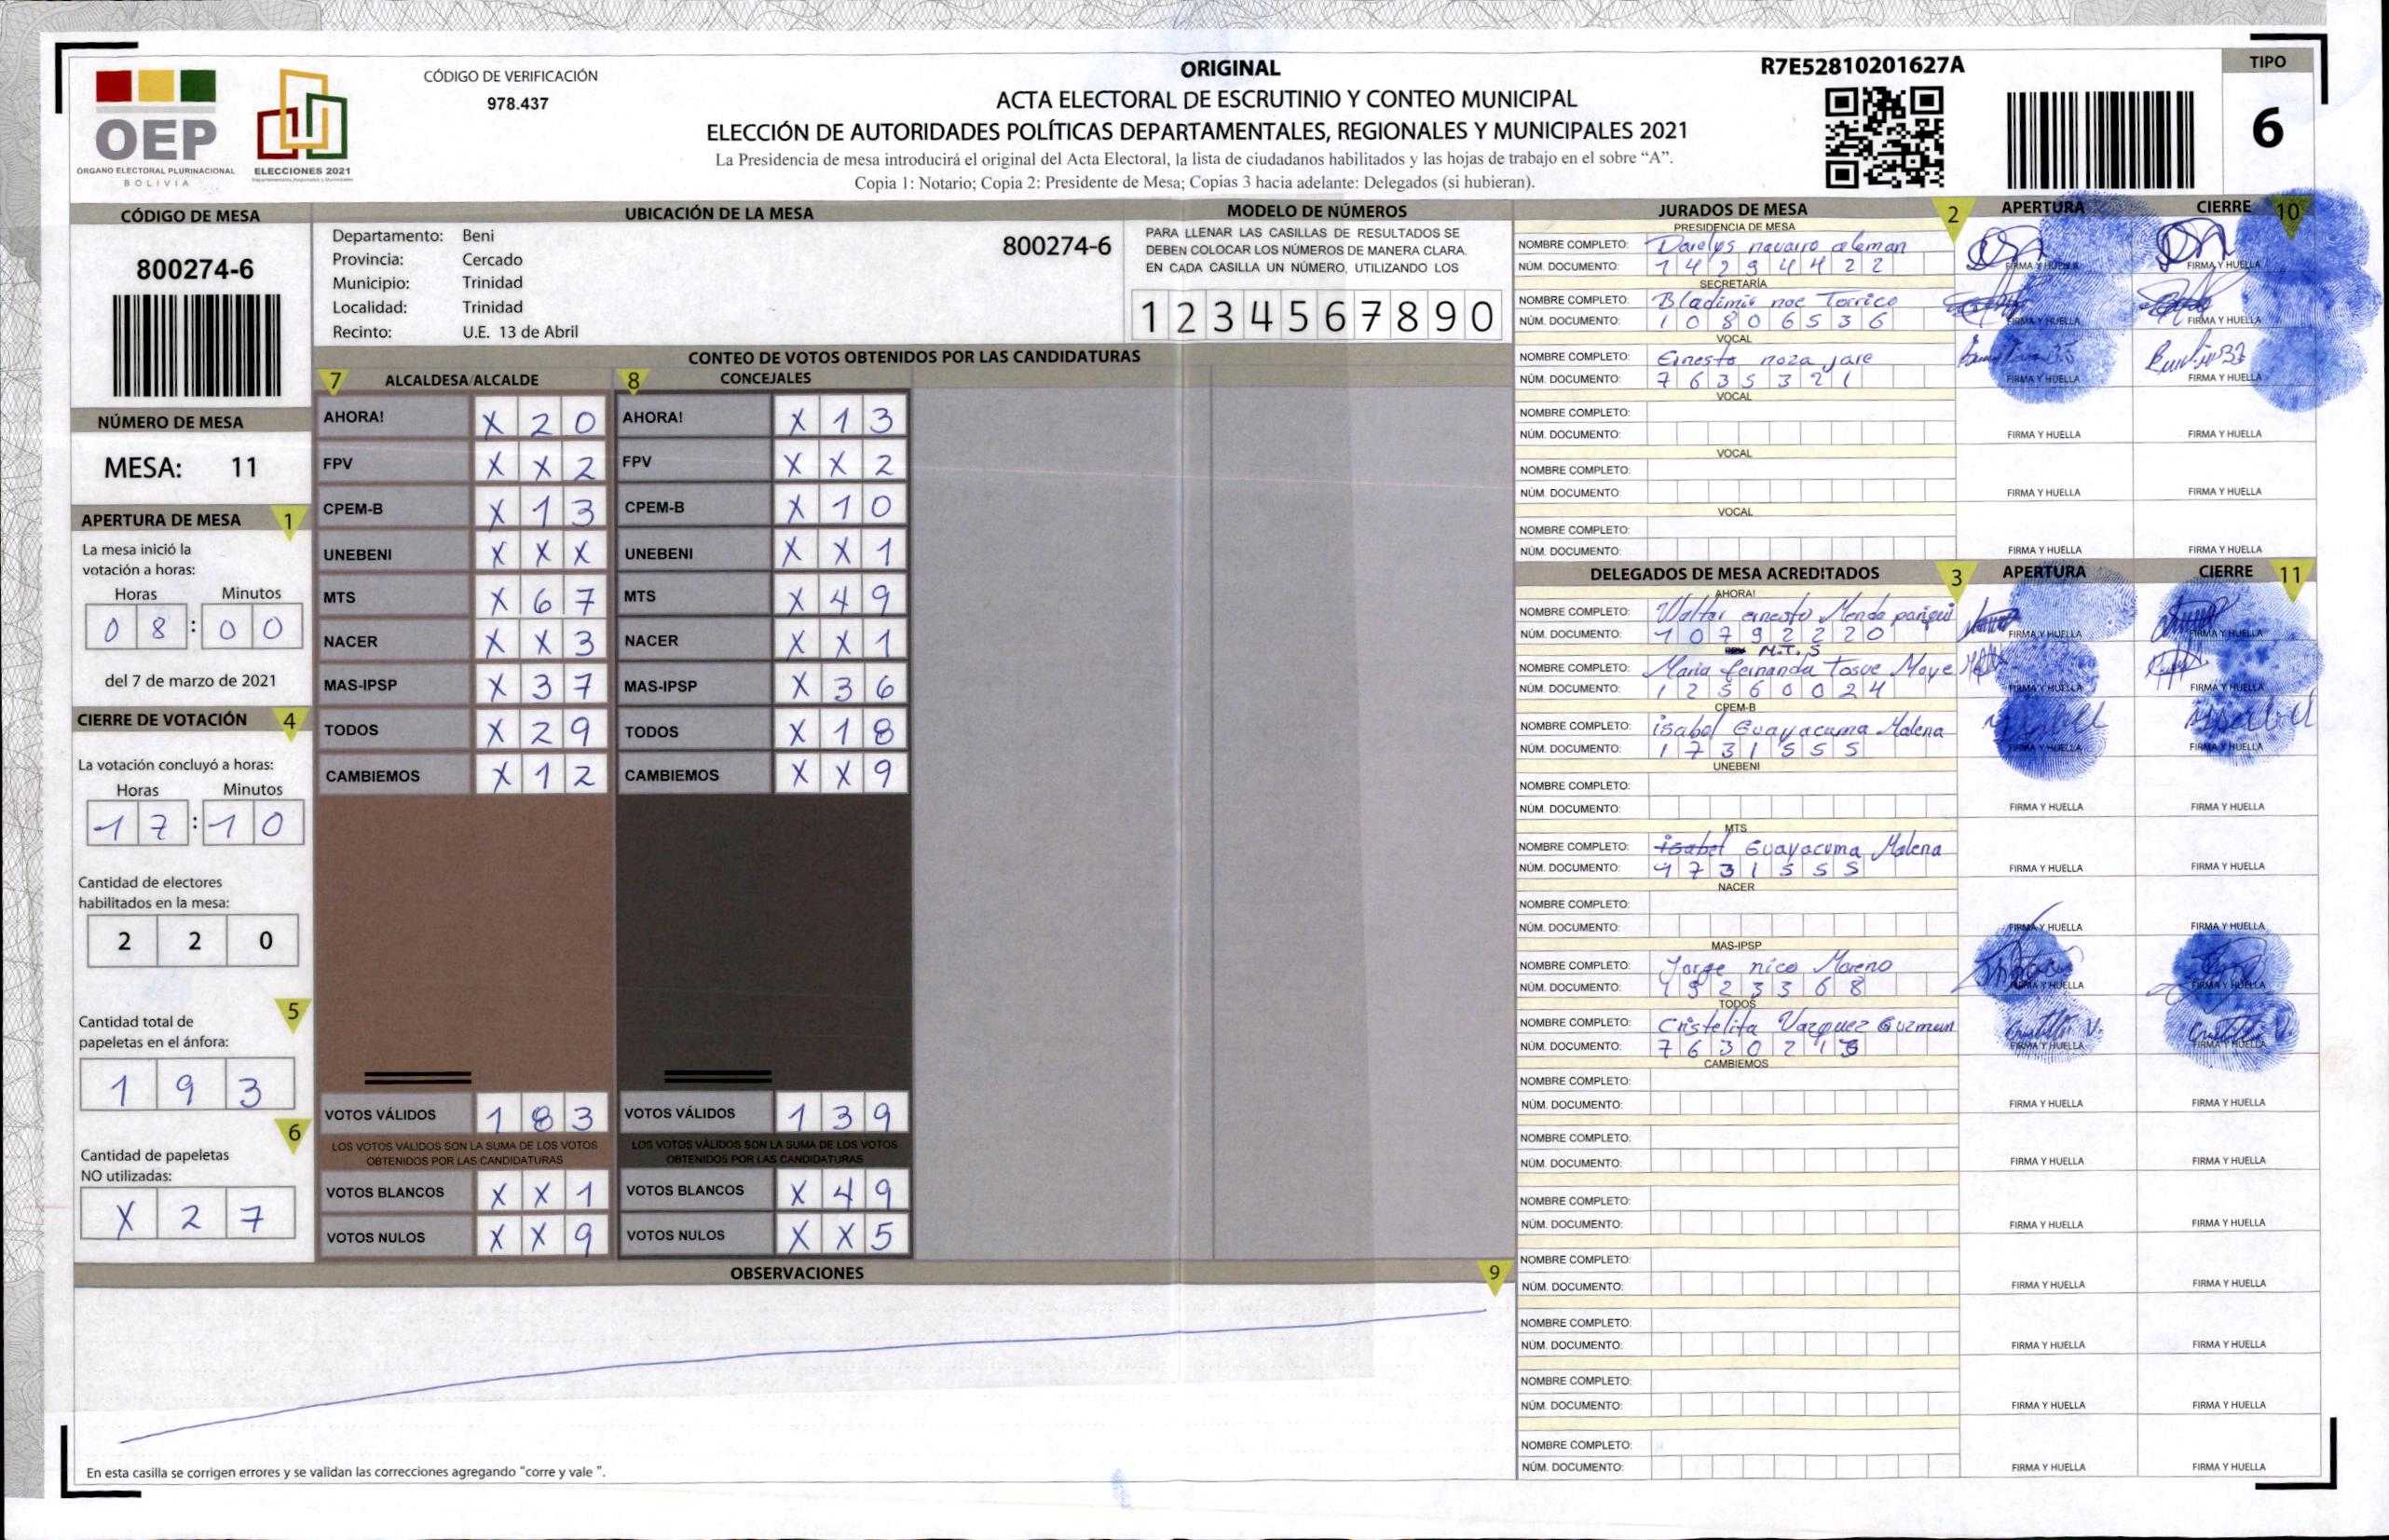 OEP
ÓRGANO ELECTORAL PLURINACIONAL
BOLIVIA
ELECCIONES 2021
CÓDIGO DE VERIFICACIÓN
978.437
ORIGINAL
ACTA ELECTORAL DE ESCRUTINIO Y CONTEO MUNICIPAL
ELECCIÓN DE AUTORIDADES POLÍTICAS DEPARTAMENTALES, REGIONALES Y MUNICIPALES 2021
La Presidencia de mesa introducirá el original del Acta Electoral, la lista de ciudadanos habilitados y las hojas de trabajo en el sobre “A”.
Copia 1: Notario; Copia 2: Presidente de Mesa; Copias 3 hacia adelante: Delegados (si hubieran).
R7E52810201627A
TIPO
6
CÓDIGO DE MESA
800274-6
NÚMERO DE MESA
MESA: 11
APERTURA DE MESA 1
La mesa inició la
votación a horas:
Horas Minutos
0 8 : 0 0
del 7 de marzo de 2021
CIERRE DE VOTACIÓN 4
La votación concluyó a horas:
Horas Minutos
1 7 : 1 0
Cantidad de electores
habilitados en la mesa:
2 2 0
5
Cantidad total de
papeletas en el ánfora:
1 9 3
6
Cantidad de papeletas
NO utilizadas:
X 2 7
UBICACIÓN DE LA MESA
Departamento: Beni
Provincia: Cercado
Municipio: Trinidad
Localidad: Trinidad
Recinto: U.E. 13 de Abril
800274-6
MODELO DE NÚMEROS
PARA LLENAR LAS CASILLAS DE RESULTADOS SE
DEBEN COLOCAR LOS NÚMEROS DE MANERA CLARA.
EN CADA CASILLA UN NÚMERO, UTILIZANDO LOS
1 2 3 4 5 6 7 8 9 0
CONTEO DE VOTOS OBTENIDOS POR LAS CANDIDATURAS
7 ALCALDESA/ALCALDE 8 CONCEJALES
AHORA! X 2 0 AHORA! X 1 3
FPV X X 2 FPV X X 2
CPEM-B X 1 3 CPEM-B X 1 0
UNEBENI X X X UNEBENI X X 1
MTS X 6 7 MTS X 4 9
NACER X X 3 NACER X X 1
MAS-IPSP X 3 7 MAS-IPSP X 3 6
TODOS X 2 9 TODOS X 1 8
CAMBIEMOS X 1 2 CAMBIEMOS X X 9
VOTOS VÁLIDOS 1 8 3 VOTOS VÁLIDOS 1 3 9
LOS VOTOS VÁLIDOS SON LA SUMA DE LOS VOTOS LOS VOTOS VÁLIDOS SON LA SUMA DE LOS VOTOS
OBTENIDOS POR LAS CANDIDATURAS OBTENIDOS POR LAS CANDIDATURAS
VOTOS BLANCOS X X 1 VOTOS BLANCOS X 4 9
VOTOS NULOS X X 9 VOTOS NULOS X X 5
OBSERVACIONES 9
En esta casilla se corrigen errores y se validan las correcciones agregando “corre y vale ”.
JURADOS DE MESA 2 APERTURA CIERRE 10
PRESIDENCIA DE MESA
NOMBRE COMPLETO: Darelys navarro aleman
NÚM. DOCUMENTO: 1 4 2 9 4 4 2 2 FIRMA Y HUELLA FIRMA Y HUELLA
SECRETARÍA
NOMBRE COMPLETO: Bladimir noe Torrico
NÚM. DOCUMENTO: 1 0 8 0 6 5 3 6 FIRMA Y HUELLA FIRMA Y HUELLA
VOCAL
NOMBRE COMPLETO: Ernesto noza jare
NÚM. DOCUMENTO: 7 6 3 5 3 2 1 FIRMA Y HUELLA FIRMA Y HUELLA
VOCAL
NOMBRE COMPLETO:
NÚM. DOCUMENTO: FIRMA Y HUELLA FIRMA Y HUELLA
VOCAL
NOMBRE COMPLETO:
NÚM. DOCUMENTO: FIRMA Y HUELLA FIRMA Y HUELLA
VOCAL
NOMBRE COMPLETO:
NÚM. DOCUMENTO: FIRMA Y HUELLA FIRMA Y HUELLA
DELEGADOS DE MESA ACREDITADOS 3 APERTURA CIERRE 11
AHORA!
NOMBRE COMPLETO: Walter ernesto Mendo
NÚM. DOCUMENTO: 1 0 7 9 2 2 2 0 FIRMA Y HUELLA FIRMA Y HUELLA
M.T.S
NOMBRE COMPLETO: Maria fernanda Tosue Moye
NÚM. DOCUMENTO: 1 2 5 6 0 0 2 4 FIRMA Y HUELLA FIRMA Y HUELLA
CPEM-B
NOMBRE COMPLETO: isabel Guayacuma Malena
NÚM. DOCUMENTO: 1 7 3 1 5 5 5 FIRMA Y HUELLA FIRMA Y HUELLA
UNEBENI
NOMBRE COMPLETO:
NÚM. DOCUMENTO: FIRMA Y HUELLA FIRMA Y HUELLA
MTS
NOMBRE COMPLETO: isabel Guayacuma Malena
NÚM. DOCUMENTO: 1 7 3 1 5 5 5 FIRMA Y HUELLA FIRMA Y HUELLA
NACER
NOMBRE COMPLETO:
NÚM. DOCUMENTO: FIRMA Y HUELLA FIRMA Y HUELLA
MAS-IPSP
NOMBRE COMPLETO: Jorge nico Moreno
NÚM. DOCUMENTO: 1 9 2 3 3 6 8 FIRMA Y HUELLA FIRMA Y HUELLA
TODOS
NOMBRE COMPLETO: Cristelita Vazquez Guzman
NÚM. DOCUMENTO: 7 6 3 0 2 1 FIRMA Y HUELLA FIRMA Y HUELLA
CAMBIEMOS
NOMBRE COMPLETO:
NÚM. DOCUMENTO: FIRMA Y HUELLA FIRMA Y HUELLA
NOMBRE COMPLETO:
NÚM. DOCUMENTO: FIRMA Y HUELLA FIRMA Y HUELLA
NOMBRE COMPLETO:
NÚM. DOCUMENTO: FIRMA Y HUELLA FIRMA Y HUELLA
NOMBRE COMPLETO:
NÚM. DOCUMENTO: FIRMA Y HUELLA FIRMA Y HUELLA
NOMBRE COMPLETO:
NÚM. DOCUMENTO: FIRMA Y HUELLA FIRMA Y HUELLA
NOMBRE COMPLETO:
NÚM. DOCUMENTO: FIRMA Y HUELLA FIRMA Y HUELLA
NOMBRE COMPLETO:
NÚM. DOCUMENTO: FIRMA Y HUELLA FIRMA Y HUELLA